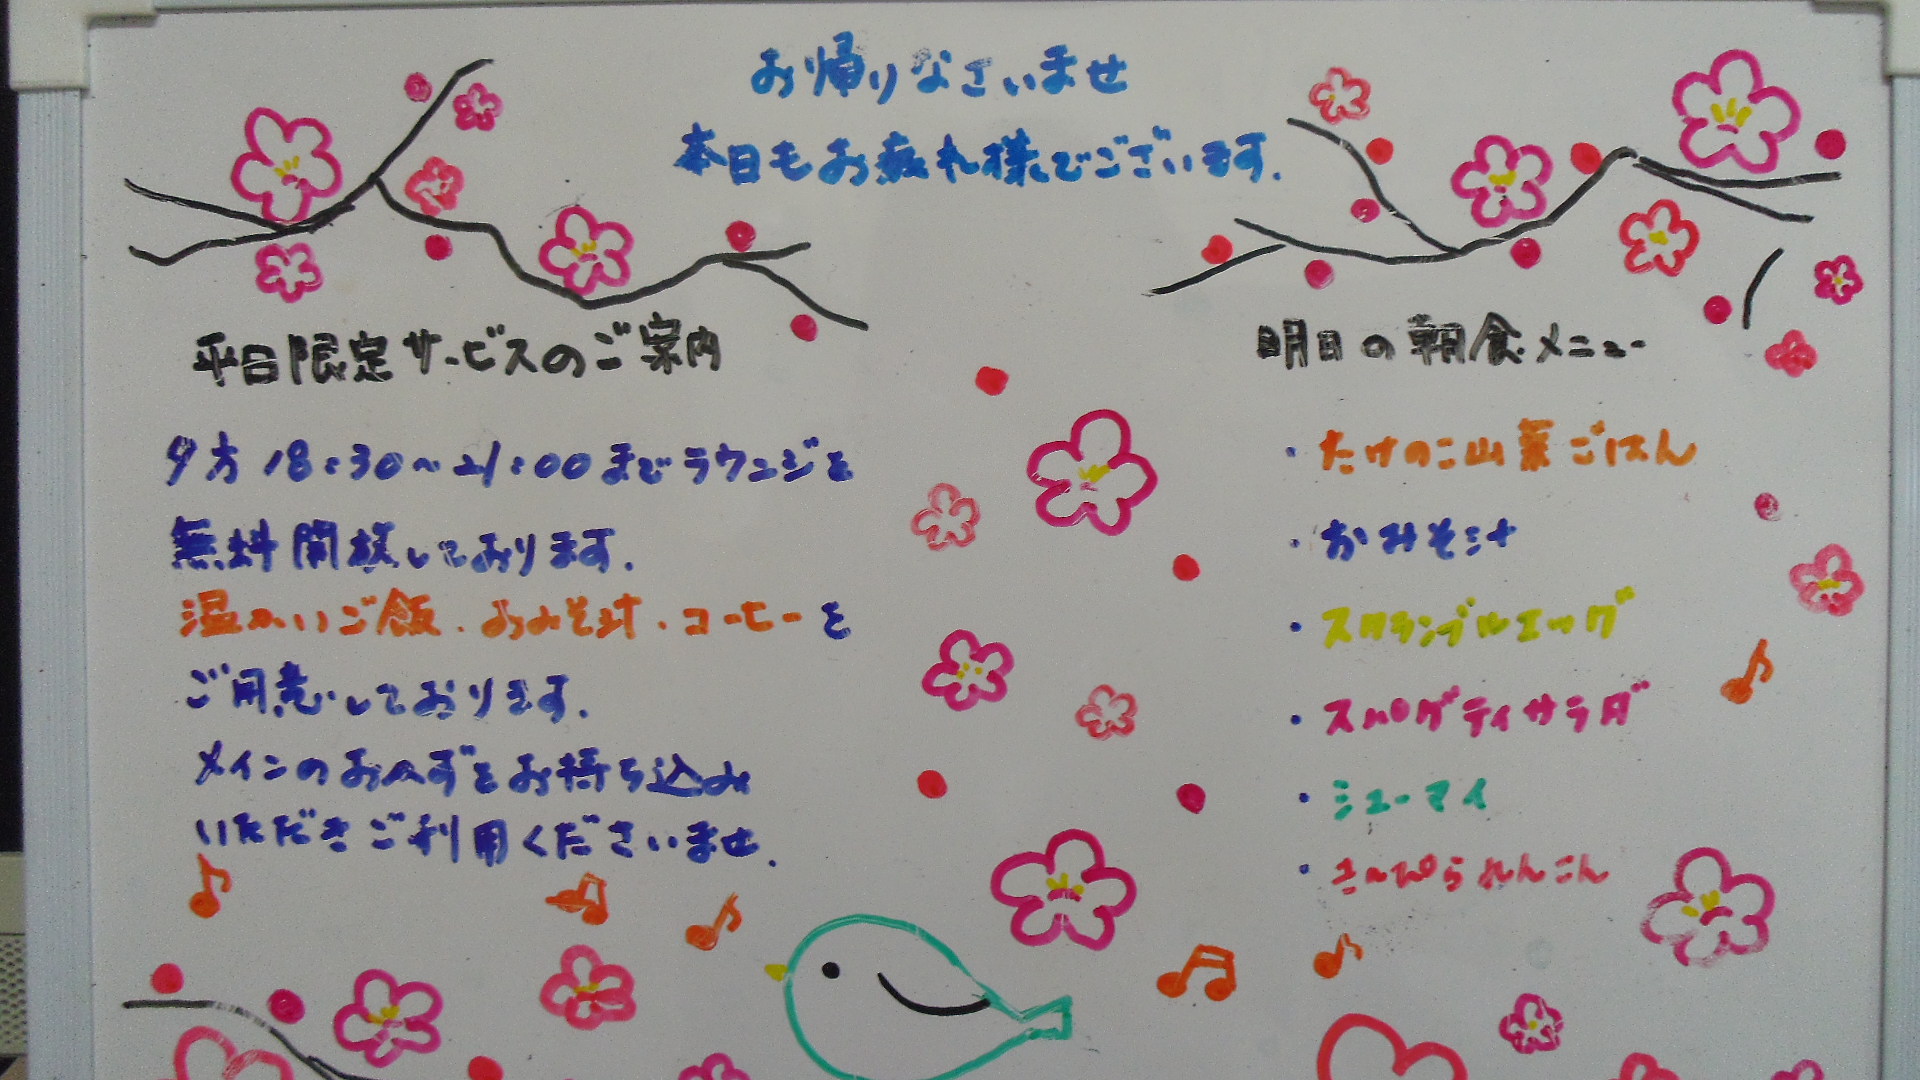 お帰りなさいませ
本日もお疲れ様でございます.
平日限定サービスのご案内
夕方18:30〜21:00までラウンジを
無料開放しております.
温かいご飯.おみそ汁.コーヒーを
ご用意しております.
メインのおかずをお持ち込み
いただきご利用くださいませ.
明日の朝食メニュー
・たけのこ山菜ごはん
・おみそ汁
・スクランブルエッグ
・スパゲティサラダ
・シューマイ
・きんぴられんこん